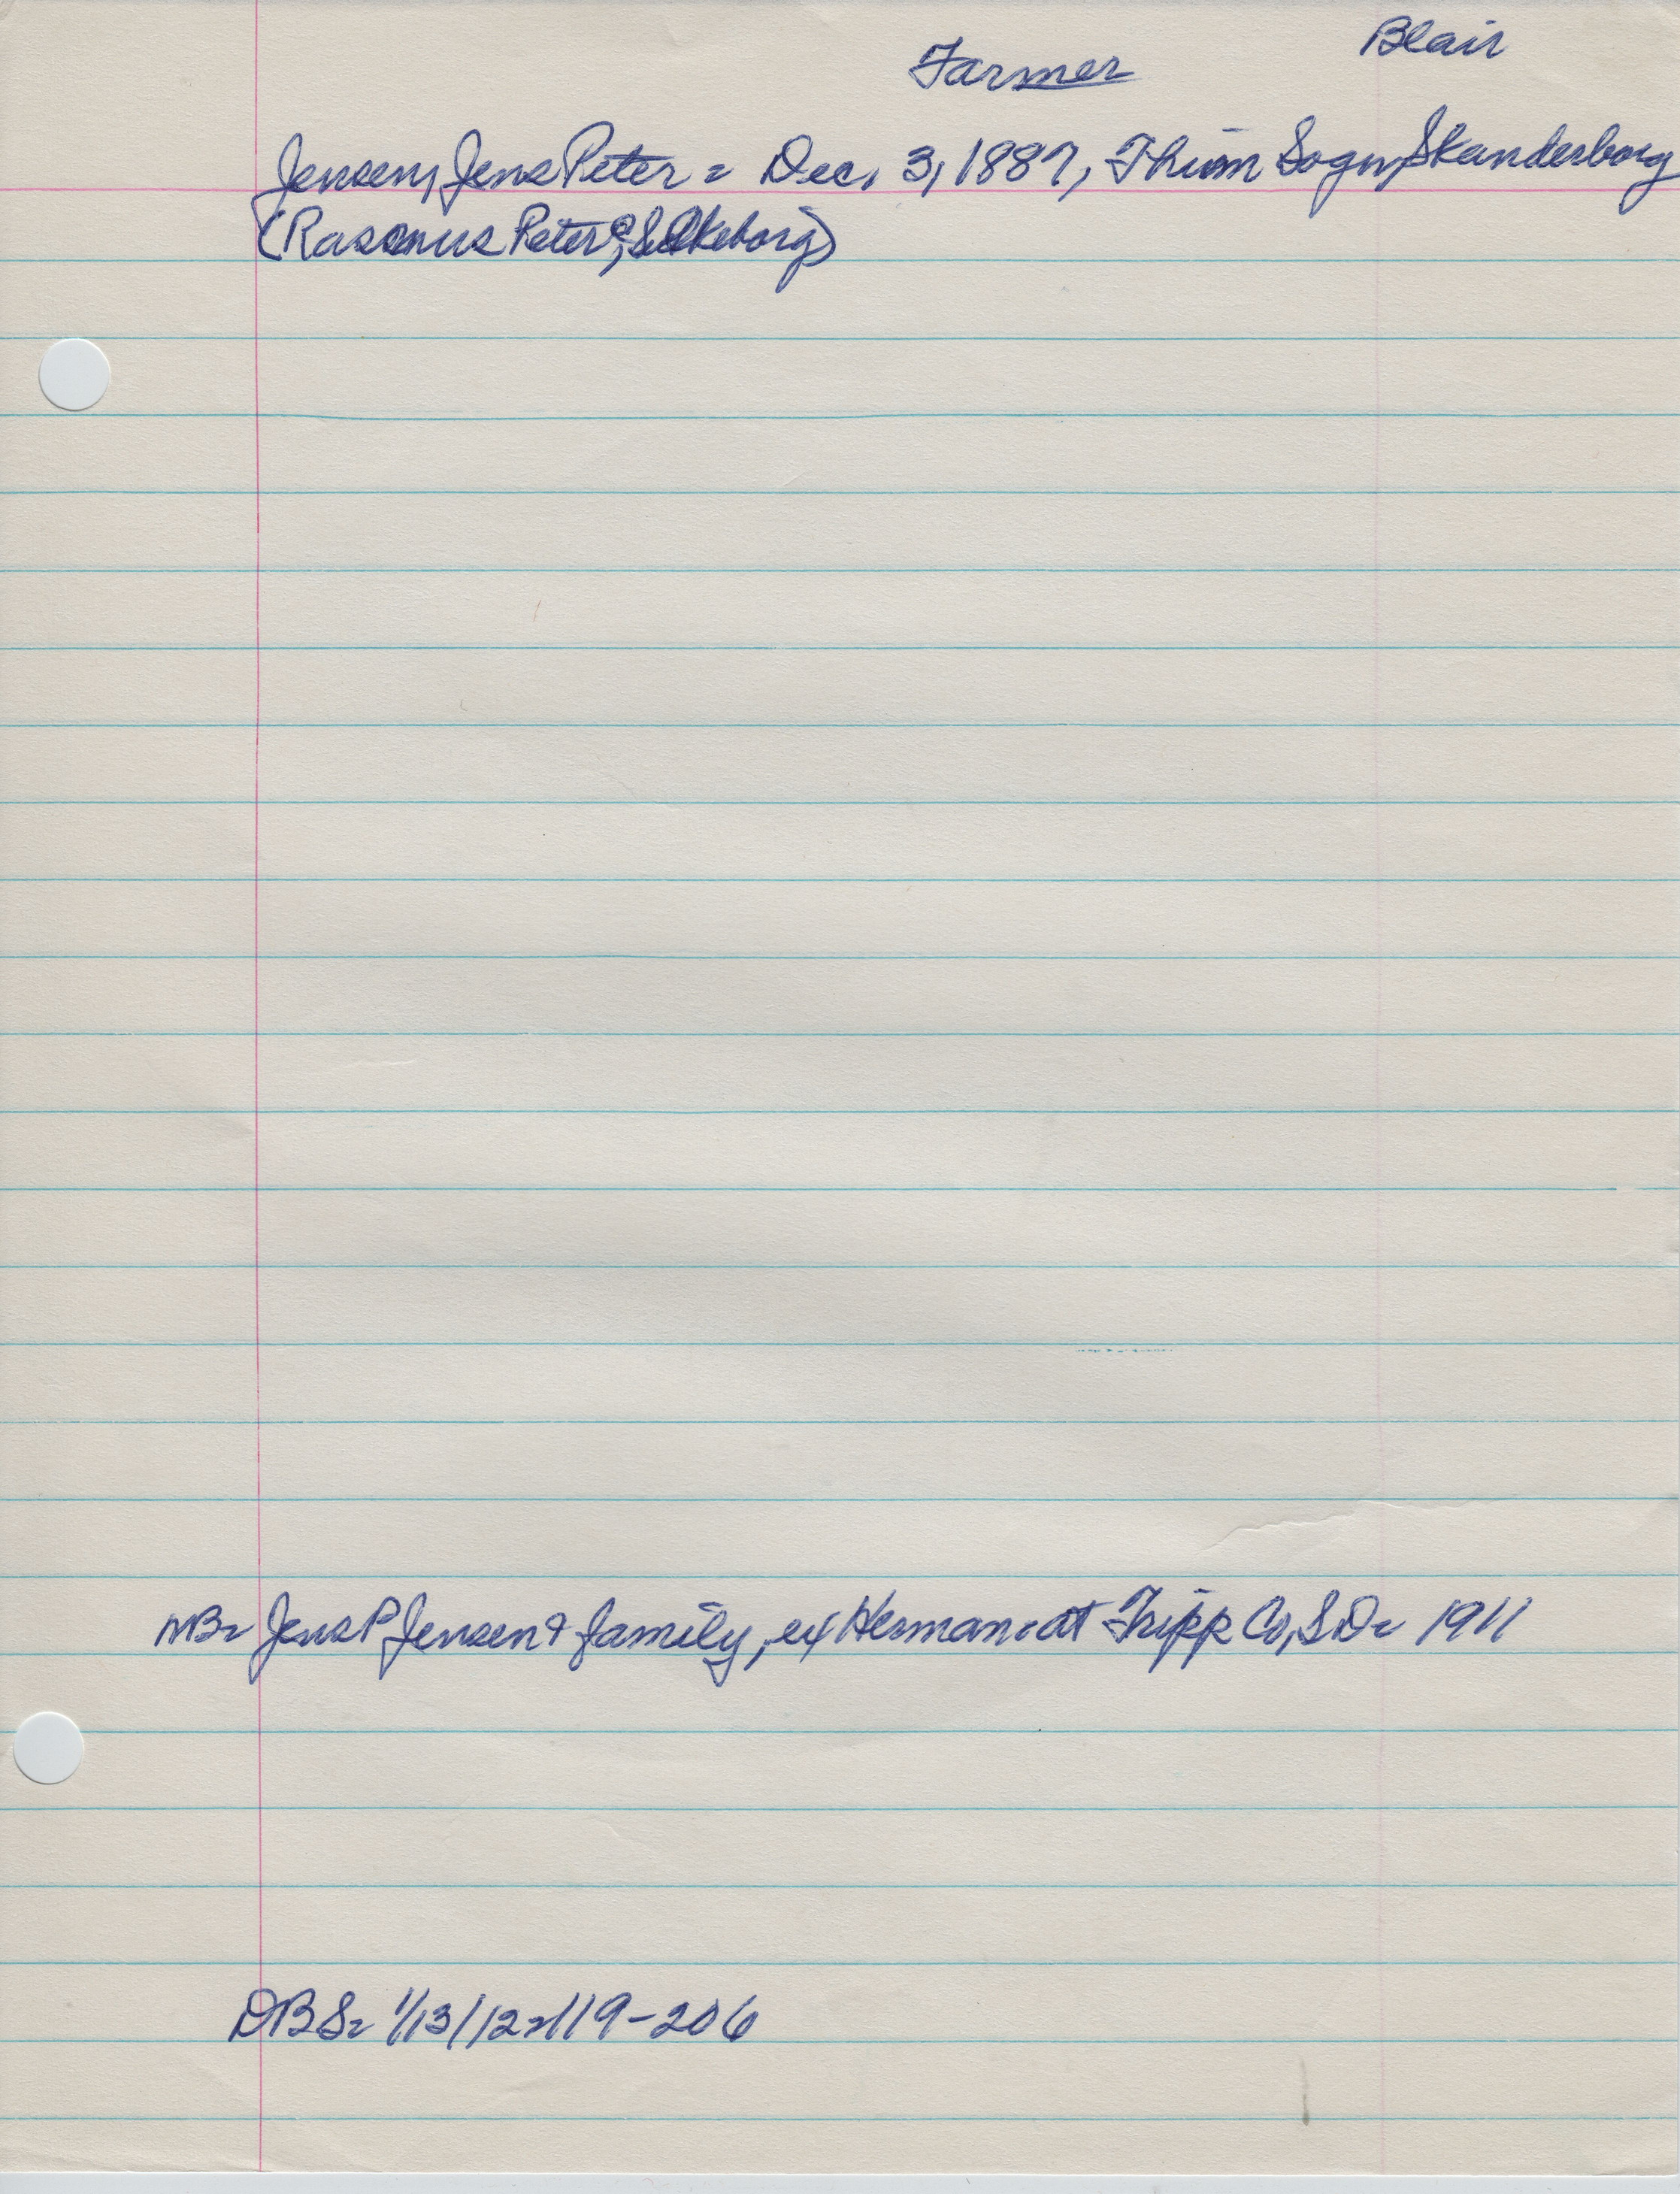 Blair
Farmer
Jensen, Jens Peter = Dec. 3, 1887, Sogn, Skanderborg
(Rasmus Peter, Silkeborg)
NB = Jens P Jensen & family, ex Herman = at Tripp Co, S.D. = 1911
DBS = 1/13/12 = 119-206